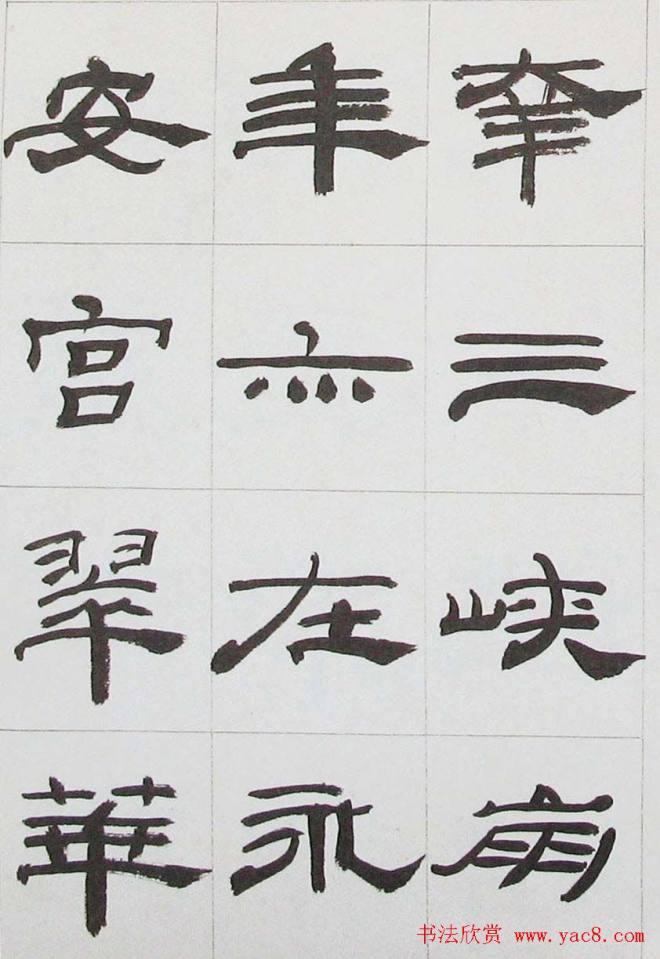 幸三峡崩
年亦在永
安宫翠華
书法欣赏 www.yac8.com